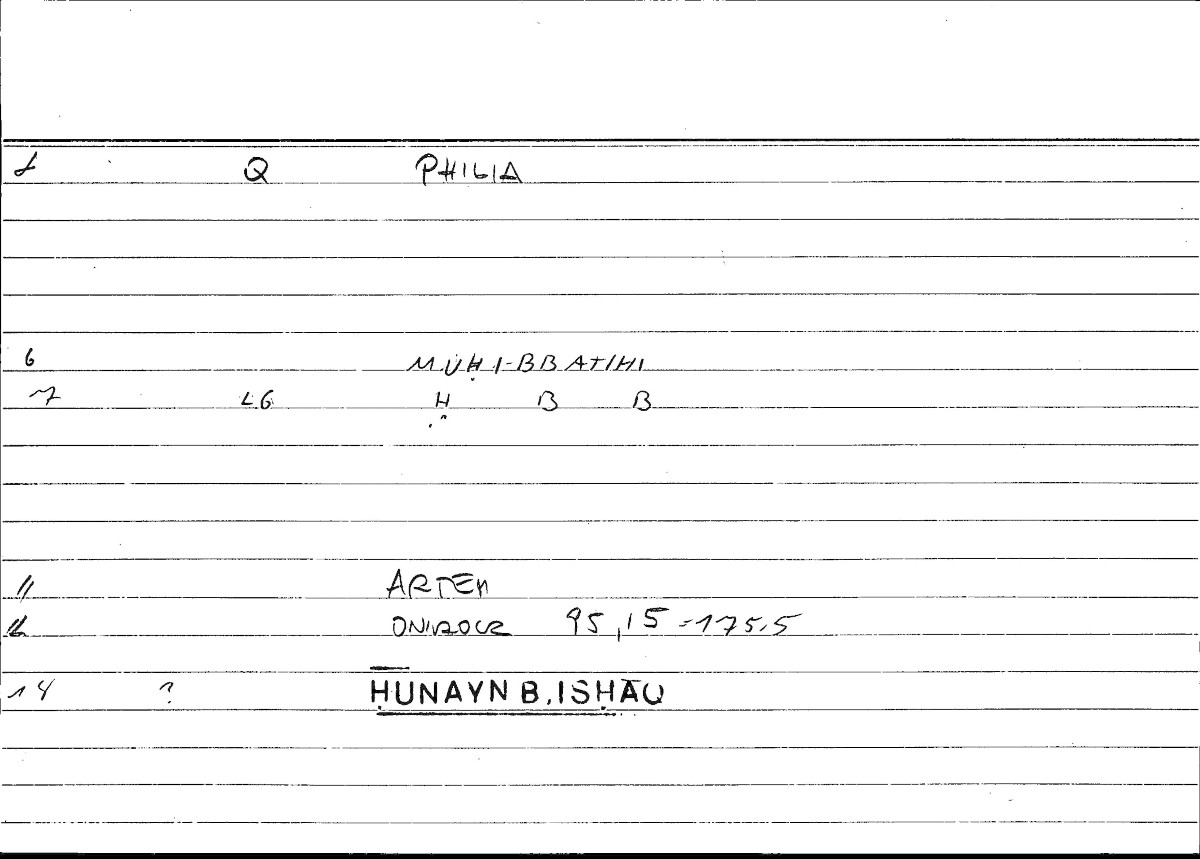 1 Q PHILIA
6 MUḤI-BBATIHI
7 LG Ḥ B B
11 ARTEM
12 ONIROCR 95,15=175.5
14 ? ḤUNAYN B.ISḤĀQ